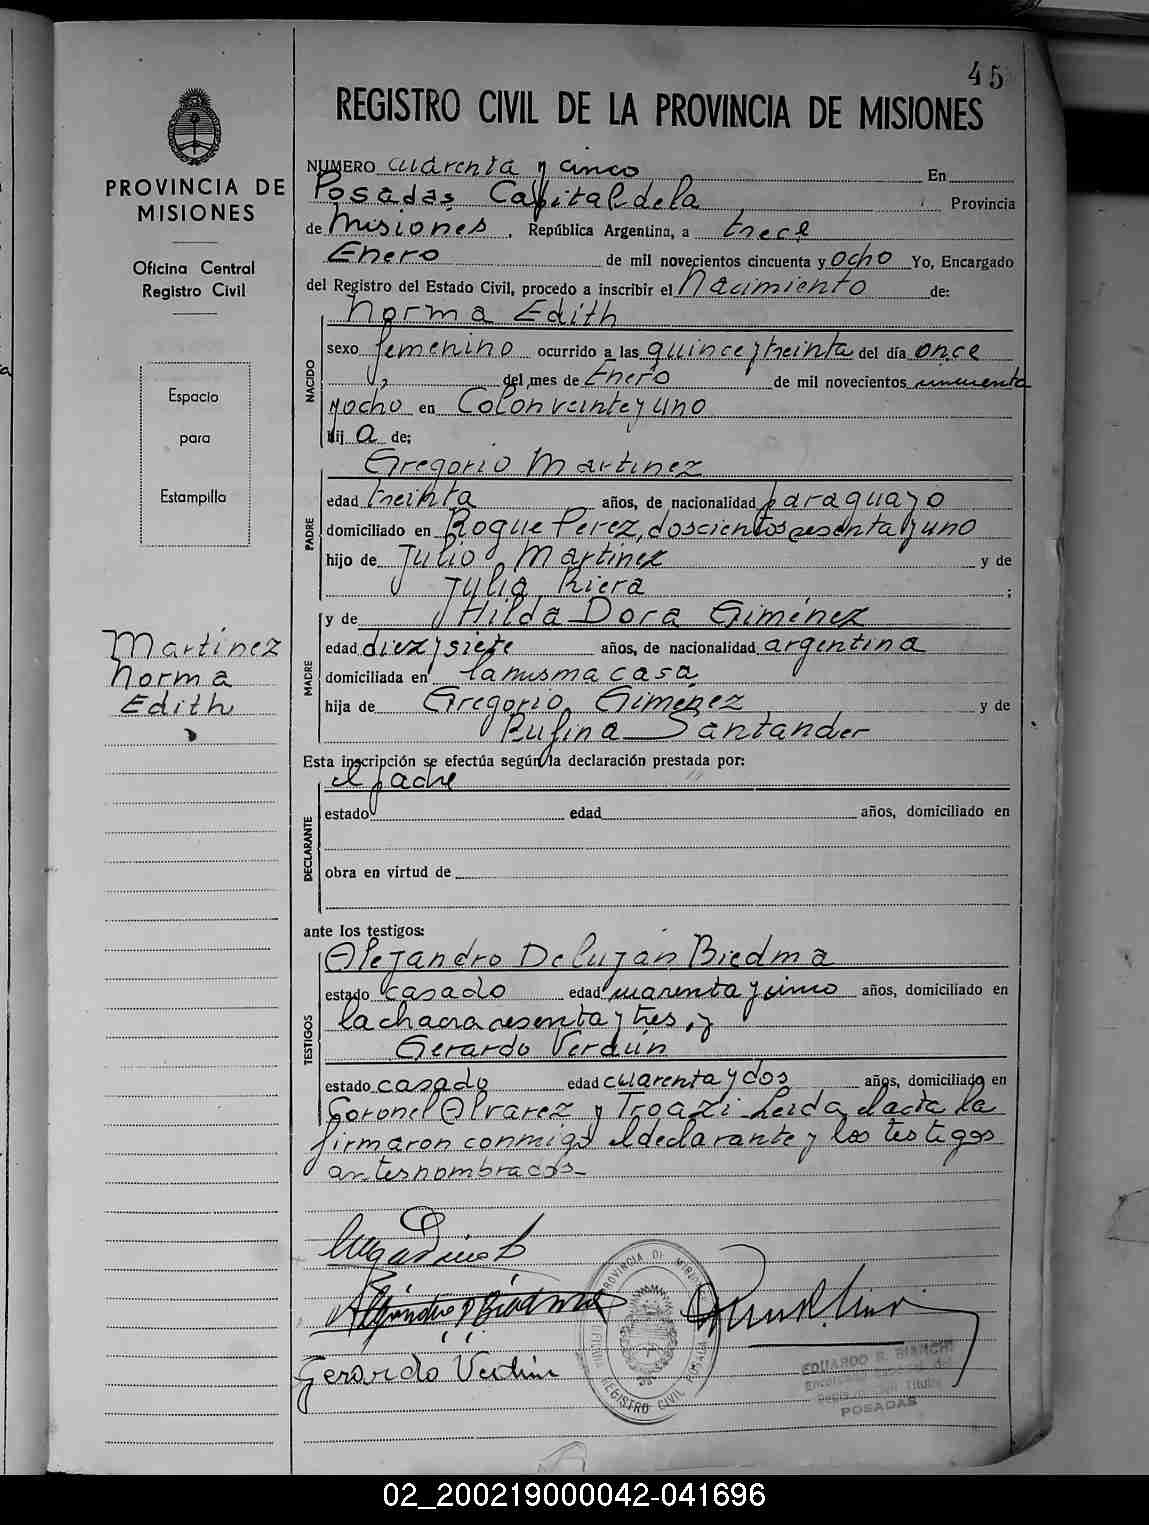 45
REGISTRO CIVIL DE LA PROVINCIA DE MISIONES
PROVINCIA DE
MISIONES
Oficina Central
Registro Civil
Espacio
para
Estampilla
Martinez
Norma
Edith
NUMERO cuarenta y cinco En
Posadas Capital de la Provincia
de Misiones, República Argentina, a trece
Enero de mil novecientos cincuenta y ocho Yo, Encargado
del Registro del Estado Civil, procedo a inscribir el Nacimiento de:
NACIDO
Norma Edith
sexo femenino ocurrido a las quince y treinta del día once
del mes de Enero de mil novecientos cincuenta
y ocho en Colon veinte y uno
hij a de:
PADRE
Gregorio Martinez
edad treinta años, de nacionalidad paraguayo
domiciliado en Roque Perez, doscientos sesenta y uno
hijo de Julio Martinez y de
Julia Riera ;
MADRE
y de Hilda Dora Giménez
edad diez y siete años, de nacionalidad argentina
domiciliada en la misma casa
hija de Gregorio Giménez y de
Rufina Santander
Esta inscripción se efectúa según la declaración prestada por:
DECLARANTE
el padre
estado edad años, domiciliado en
obra en virtud de
ante los testigos:
TESTIGOS
Alejandro Delujan Biedma
estado casado edad cuarenta y cinco años, domiciliado en
la chacra sesenta y tres, y
Gerardo Verdún
estado casado edad cuarenta y dos años, domiciliado en
Coronel Alvarez y Leida el acta la
firmaron conmigo el declarante y los testigos
antes nombrados-
Alejandro D Biedma
Gerardo Verdún
PROVINCIA DE MISIONES
REGISTRO CIVIL POSADAS
EDUARDO R. BIANCHI
POSADAS
02_200219000042-041696